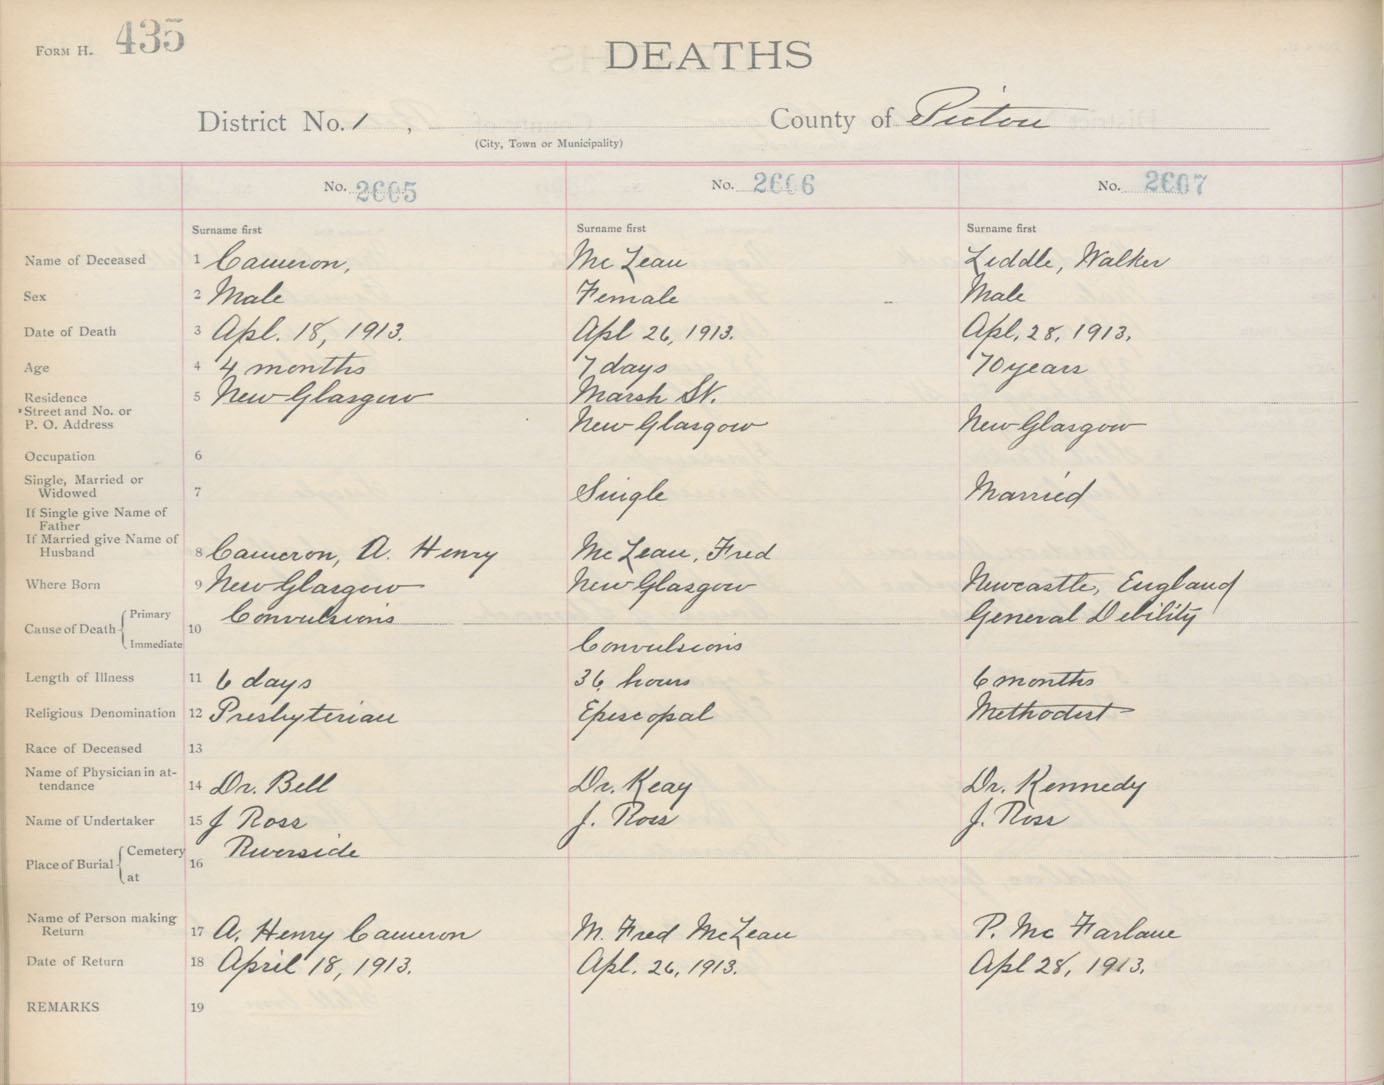 FORM H. 435
DEATHS
District No. 1 ,
County of Pictou
(City, Town or Municipality)
No. 2605
No. 2606
No. 2607
Surname first
Surname first
Surname first
Name of Deceased 1 Cameron, McLean Liddle, Walker
Sex 2 Male Female Male
Date of Death 3 Apl. 18, 1913. Apl 26, 1913. Apl. 28, 1913.
Age 4 4 months 7 days 70 years
Residence 5 New Glasgow Marsh St.
Street and No. or
P. O. Address New Glasgow New Glasgow
Occupation 6
Single, Married or
Widowed 7 Single Married
If Single give Name of
Father
If Married give Name of
Husband 8 Cameron, A. Henry McLean, Fred
Where Born 9 New Glasgow New Glasgow Newcastle, England
Cause of Death 10 Primary Convulsions General Debility
Immediate Convulsions
Length of Illness 11 6 days 36 hours 6 months
Religious Denomination 12 Presbyterian Episcopal Methodist
Race of Deceased 13
Name of Physician in at-
tendance 14 Dr. Bell Dr. Keay Dr. Kennedy
Name of Undertaker 15 J Ross J. Ross J. Ross
Place of Burial 16 Cemetery Riverside
at
Name of Person making
Return 17 A. Henry Cameron M. Fred McLean P. McFarlane
Date of Return 18 April 18, 1913. Apl. 26, 1913. Apl 28, 1913.
REMARKS 19